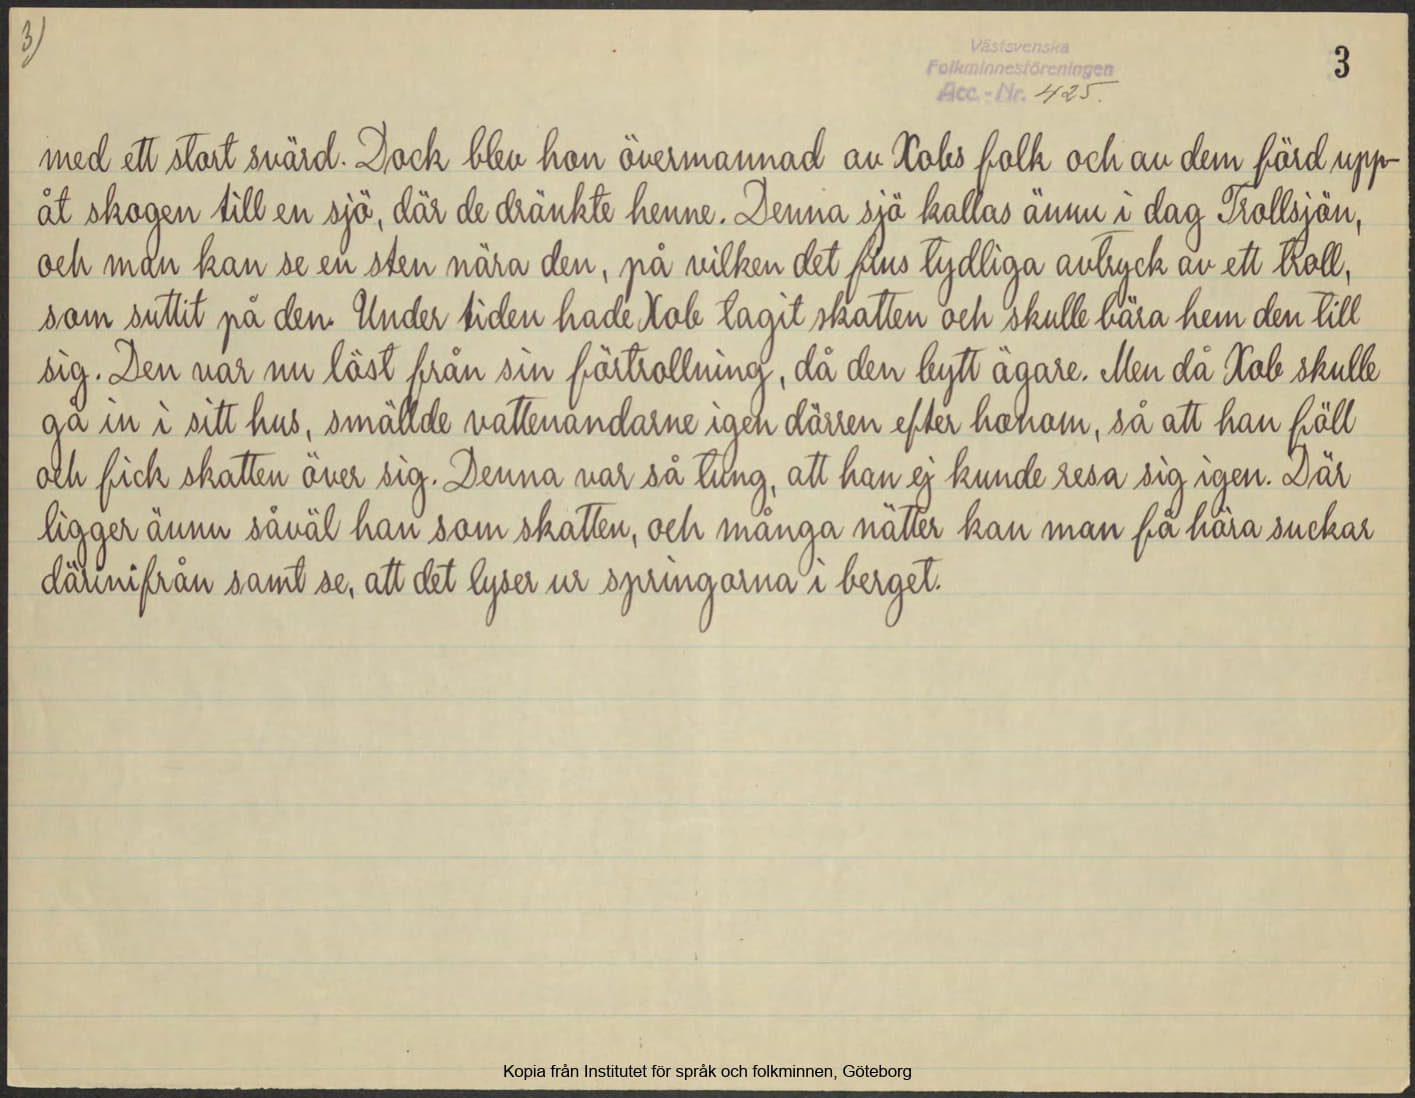 3)
Västsvenska
Folkminnesföreningen
Acc.-Nr. 425.
3
med ett stort svärd. Dock blev hon övermannad av Xobs folk och av dem förd upp-
åt skogen till en sjö, där de dränkte henne. Denna sjö kallas ännu i dag Trollsjön,
och man kan se en sten nära den, på vilken det fins tydliga avtryck av ett troll,
som suttit på den. Under tiden hade Xob tagit skatten och skulle bära hem den till
sig. Den var nu löst från sin förtrollning, då den bytt ägare. Men då Xob skulle
gå in i sitt hus, smällde vattenandarne igen dörren efter honom, så att han föll
och fick skatten över sig. Denna var så tung, att han ej kunde resa sig igen. Där
ligger ännu såväl han som skatten, och många nätter kan man få höra suckar
därinifrån samt se, att det lyser ur springorna i berget.
Kopia från Institutet för språk och folkminnen, Göteborg